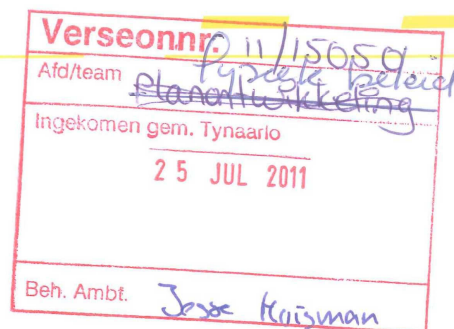 Verseonnr. 11/15059
Afd/team Fysiek beleid
Planontwikkeling
Ingekomen gem. Tynaarlo
25 JUL 2011
Beh. Ambt. Jesse Huisman